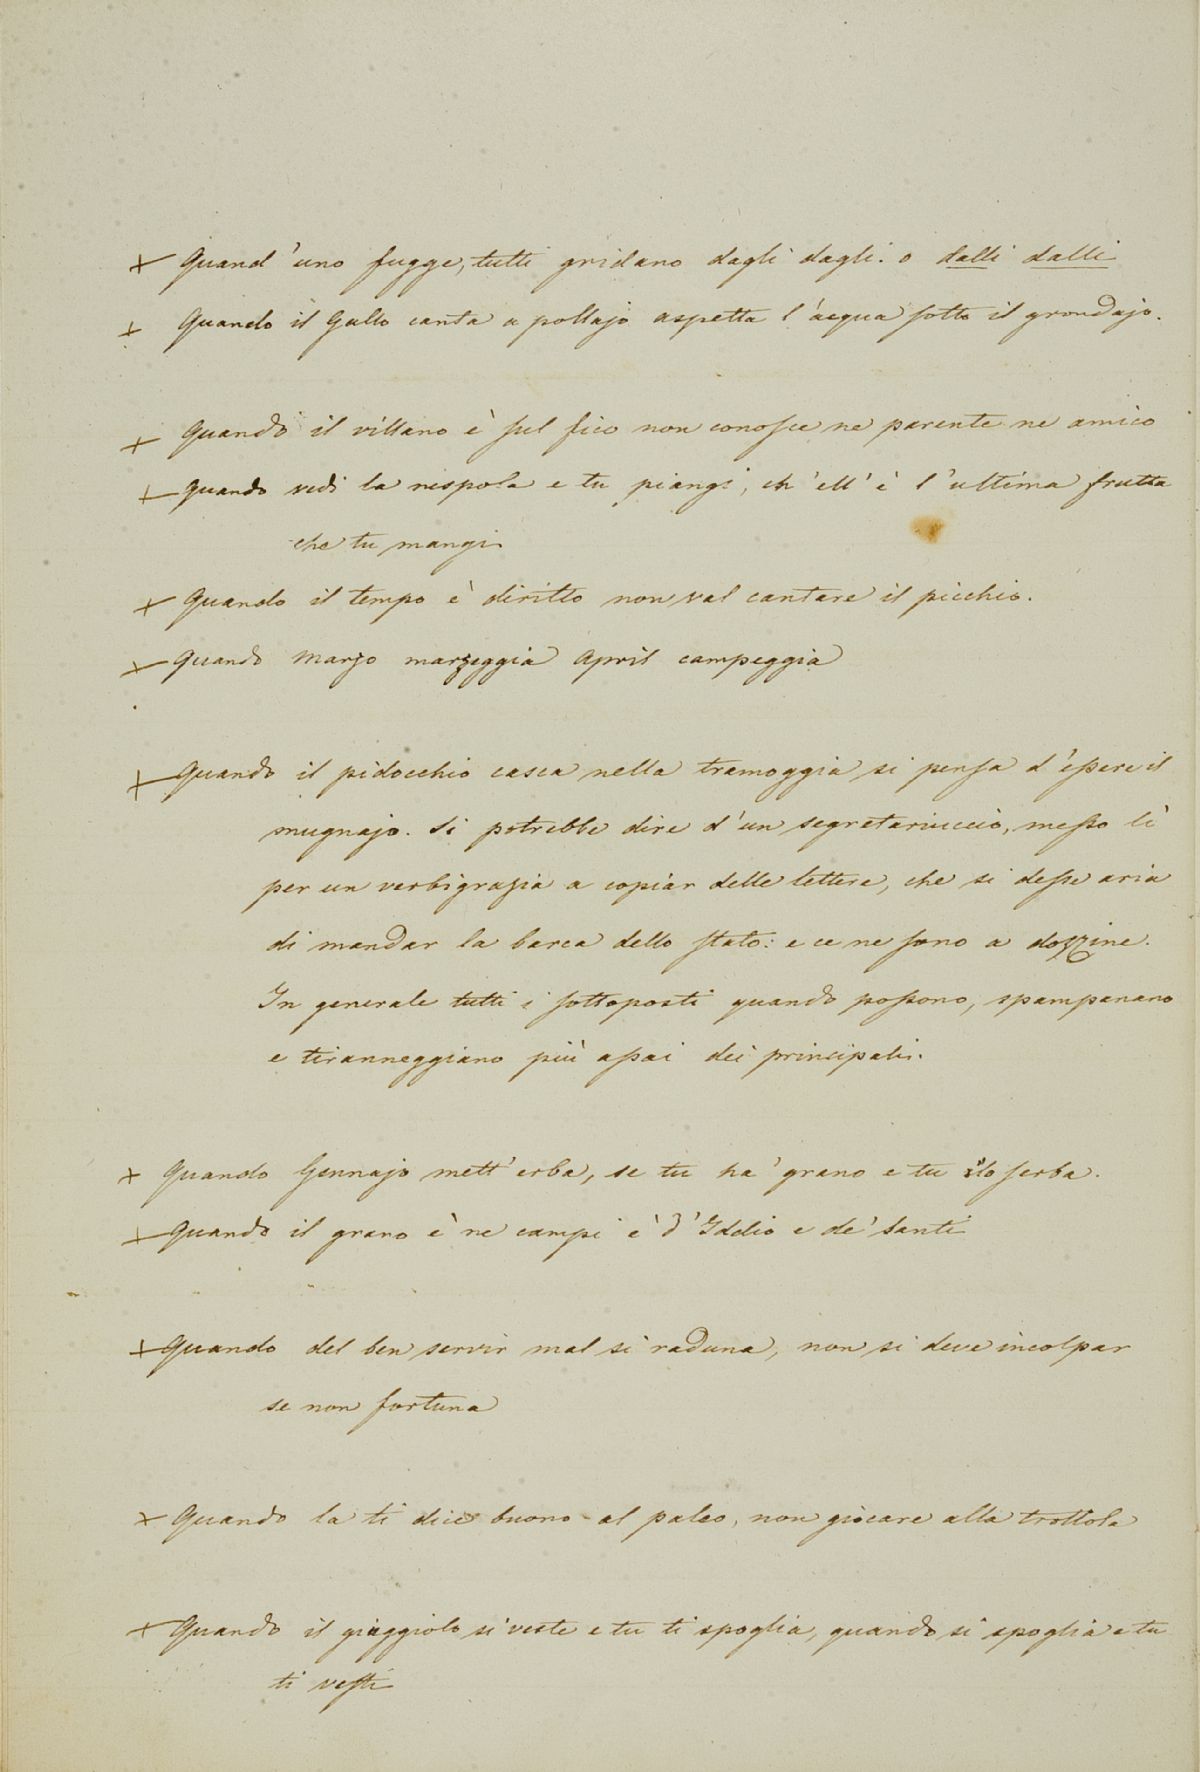 + Quand'uno fugge, tutti gridano dagli dagli. o dalli dalli
+ Quando il Gallo canta a pollajo aspetta l'acqua sotto il grondajo.
+ Quando il villano è sul fico non conosce ne parente ne amico
+ Quando vedi la nespola e tu piangi, ch'ell'è l'ultima frutta
che tu mangi
+ Quando il tempo è diritto non val cantare il picchio.
+ Quando Marzo marzeggia April campeggia
+ Quando il pidocchio casca nella tramoggia si pensa d'essere il
mugnajo. Si potrebbe dire d'un segretariuccio, messo lì
per un verbigrazia a copiar delle lettere, che si desse aria
di mandar la barca dello stato: e ce ne sono a dozzine.
In generale tutti i sottoposti quando possono, spampanano
e tiranneggiano più assai dei principali.
+ Quando Gennajo mett'erba, se tu ha' grano e tu lo serba.
+ Quando il grano è ne campi è d'Iddio e de' Santi
+ Quando del ben servir mal si raduna, non si deve incolpar
se non fortuna
+ Quando la ti dice buono al paleo, non giocare alla trottola
+ Quando il giaggiolo si veste e tu ti spoglia, quando si spoglia e tu
ti vesti